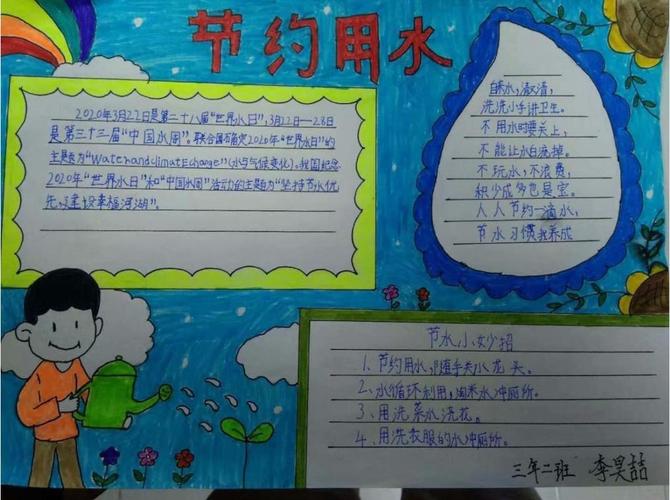 节约用水
2020年3月22日是第二十八届“世界水日”,3月22日—28日
是第三十三届“中国水周”。联合国确定2020年“世界水日”的
主题为“Waterandclimatechange”(水与气候变化)。我国纪念
2020年“世界水日”和“中国水周”活动的主题为“坚持节水优
先,建设幸福河湖”。
自来水,清又清,
洗洗小手讲卫生。
不用水时要关上,
不能让水白流掉。
不玩水,不浪费,
积少成多也是宝。
人人节约一滴水,
节水习惯我养成
节水小妙招
1、节约用水,随手关水龙头。
2、水循环利用,淘米水冲厕所。
3、用洗菜水浇花。
4、用洗衣服的水冲厕所。
三年二班 李昊喆